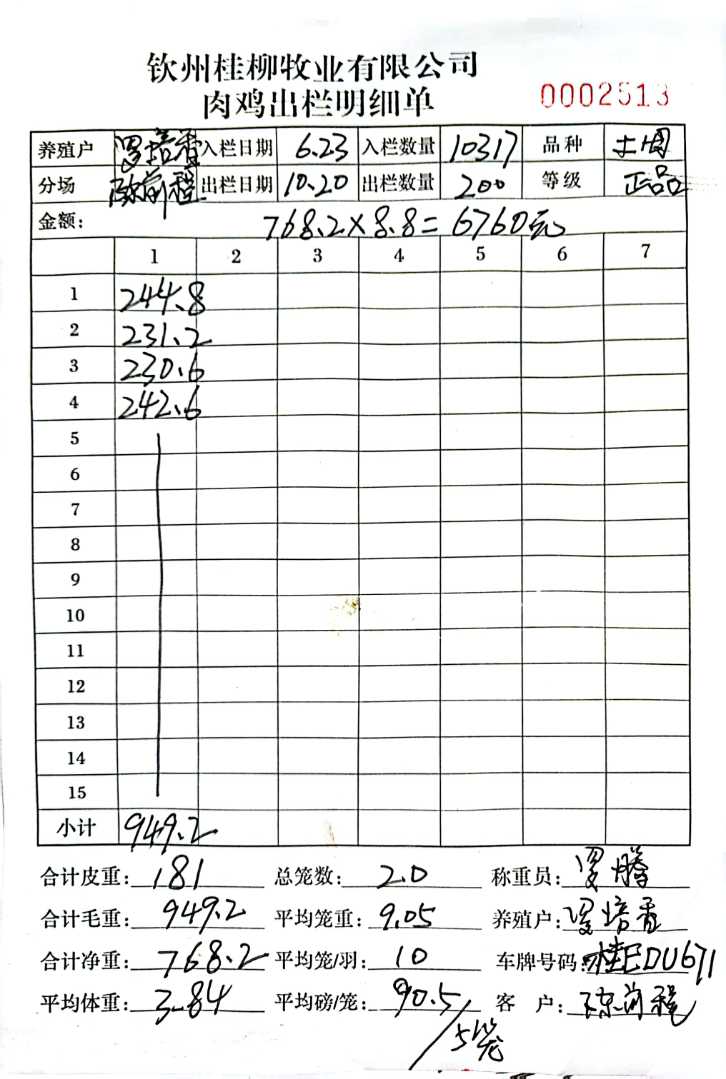 钦州桂柳牧业有限公司
肉鸡出栏明细单 0002513
养殖户 培香 入栏日期 6.23 入栏数量 10317 品种 土
分场 前程 出栏日期 10.20 出栏数量 200 等级 正品
金额: 768.2×8.8=6760元
1 2 3 4 5 6 7
1 244.8
2 231.2
3 230.6
4 242.6
5
6
7
8
9
10
11
12
13
14
15
小计 949.2
合计皮重: 181 总笼数: 20 称重员: 腾
合计毛重: 949.2 平均笼重: 9.05 养殖户: 培香
合计净重: 768.2 平均笼/羽: 10 车牌号码: 桂EDU671
平均体重: 3.84 平均磅/笼: 90.5 客 户: 前程
/5笼